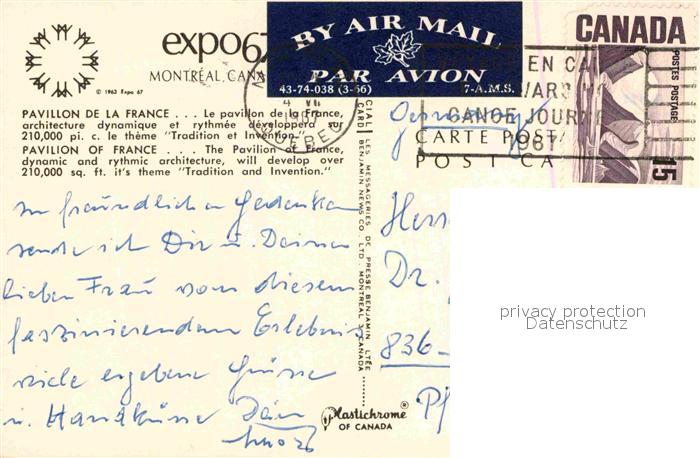 expo67
MONTRÉAL, CANA
© 1963 Expo 67
BY AIR MAIL
PAR AVION
43-74-038 (3-66) 7-A.M.S.
CANADA
POSTES POSTAGE
15
EN CA
CANOE JOURN
1967
PAVILLON DE LA FRANCE . . . Le pavillon de la France,
architecture dynamique et rythmée développera sur
210,000 pi. c. le thème "Tradition et Invention".
PAVILION OF FRANCE . . . The Pavilion of France,
dynamic and rythmic architecture, will develop over
210,000 sq. ft. it's theme "Tradition and Invention."
Germany
CARTE POSTA
POST CA
CIAL LES MESSAGERIES DE PRESSE BENJAMIN LTÉE
CARD BENJAMIN NEWS CO., LTD. - MONTREAL 3, CANADA
In freundlichen Gedenken
sende ich Dir u. Deiner
lieben Frau von diesem
faszinierenden Erlebnis
viele ergebene Grüsse
u. Handküsse Dein
Herr
Dr.
836-
Pf
Plastichrome®
OF CANADA
privacy protection
Datenschutz